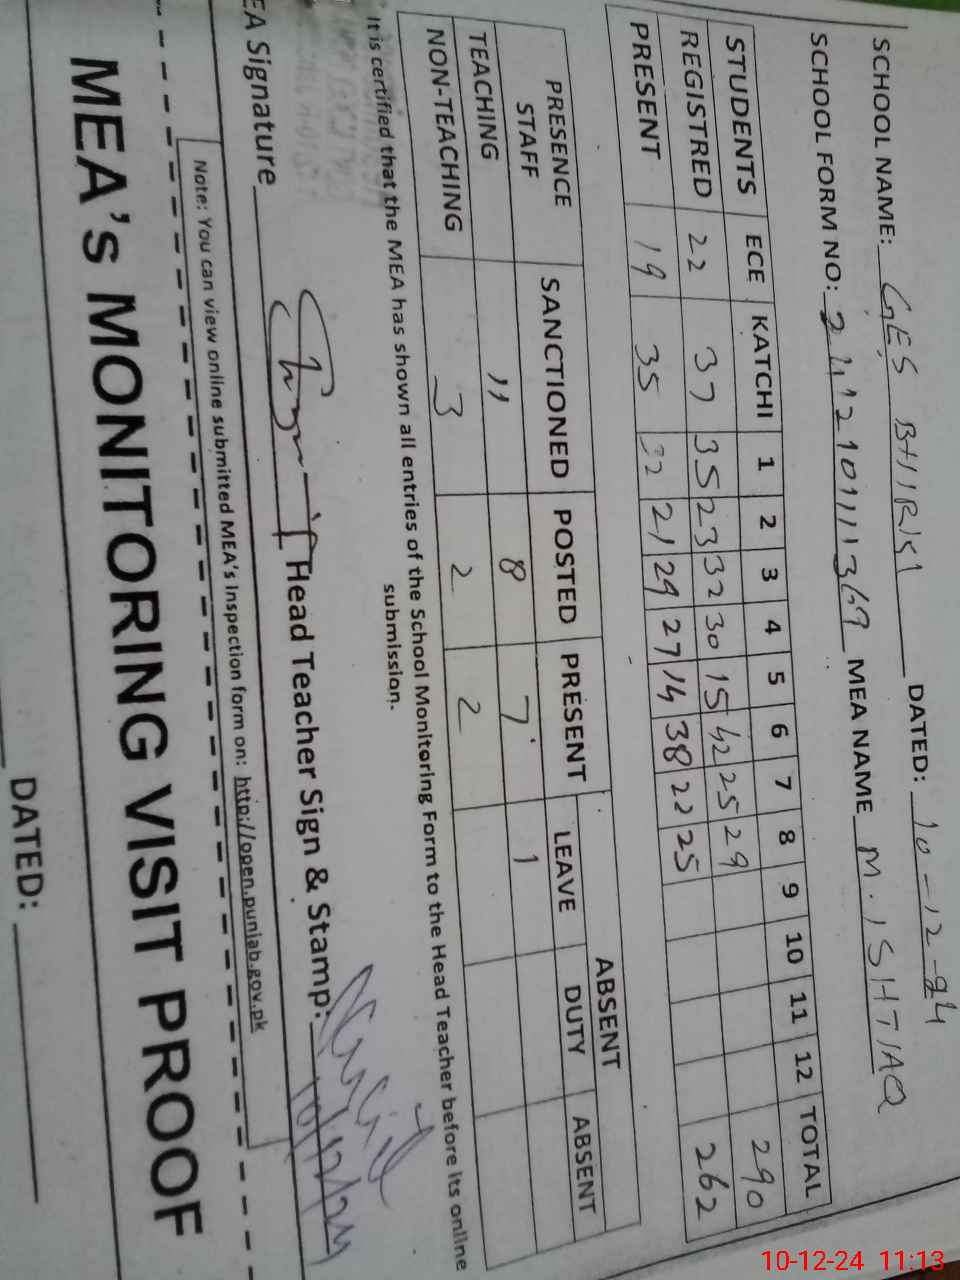 SCHOOL NAME: GES BHIRKI DATED: 10-12-24
SCHOOL FORM NO: 2412101111369 MEA NAME M. ISHTIAQ
STUDENTS ECE KATCHI 1 2 3 4 5 6 7 8 9 10 11 12 TOTAL
REGISTRED 22 37 35 23 32 30 15 42 25 29 290
PRESENT 19 35 32 21 29 27 14 38 22 25 262
PRESENCE STAFF SANCTIONED POSTED PRESENT ABSENT
LEAVE DUTY ABSENT
TEACHING 11 8 7 1
NON-TEACHING 3 2 2
It is certified that the MEA has shown all entries of the School Monitoring Form to the Head Teacher before its online
submission.
EA Signature Head Teacher Sign & Stamp: 10/12/24
Note: You can view online submitted MEA's Inspection form on: http://open.punjab.gov.pk
MEA's MONITORING VISIT PROOF
DATED:
10-12-24 11:13